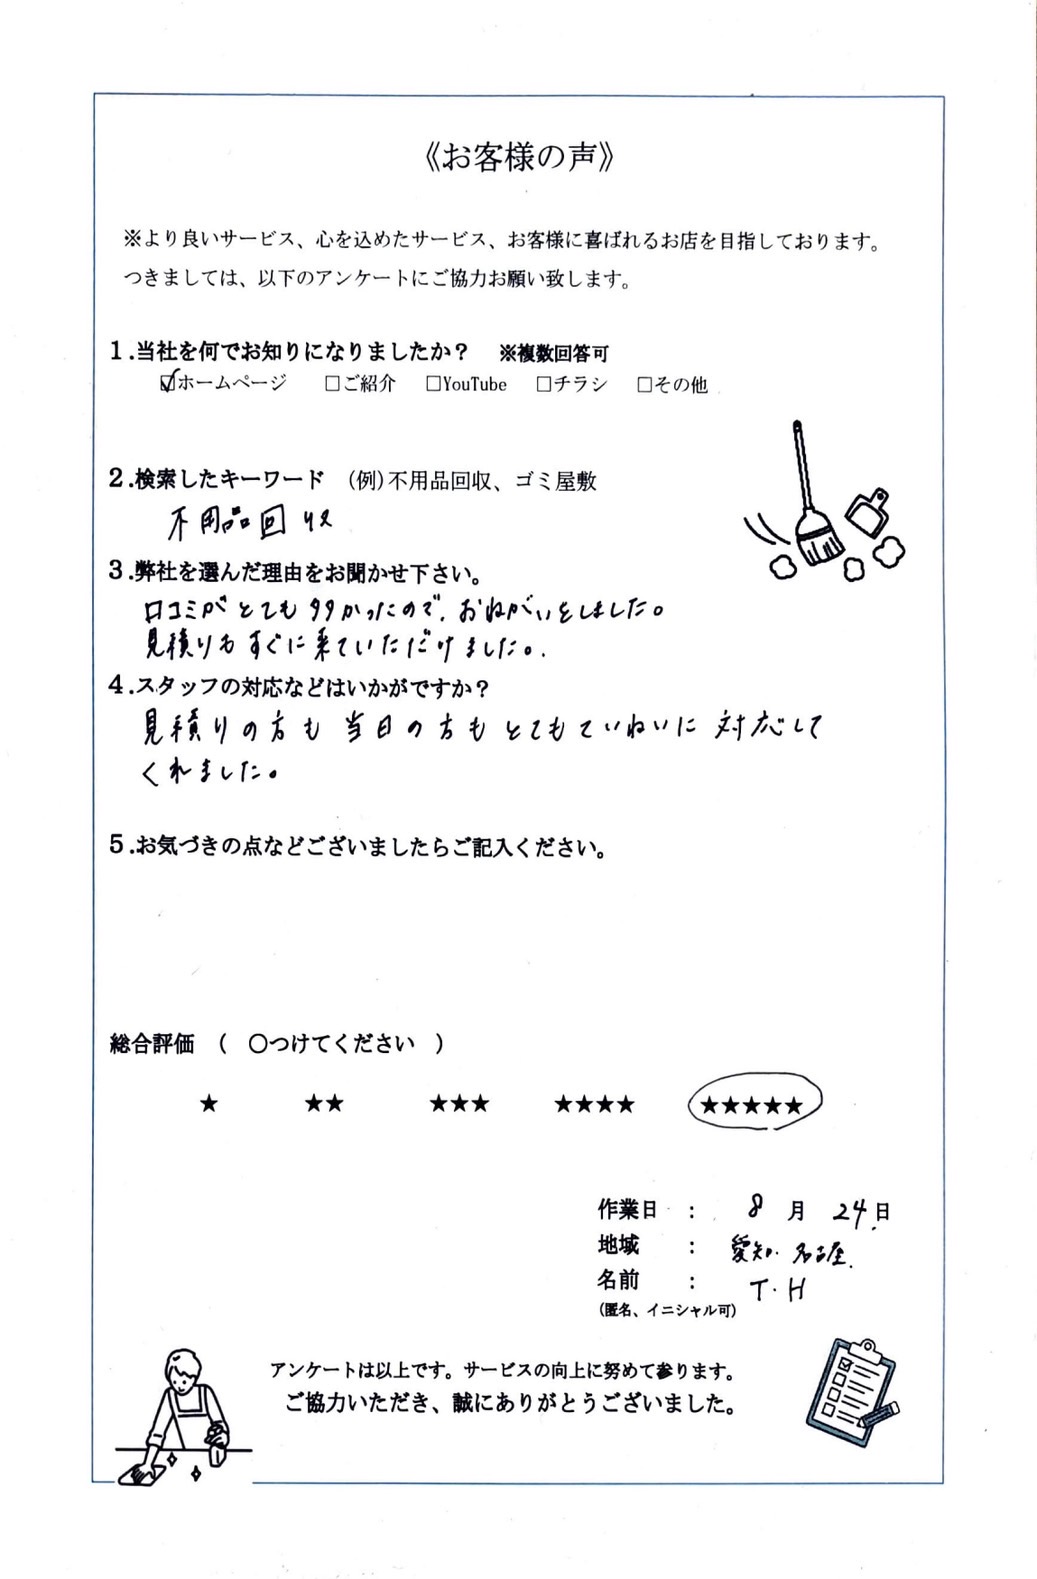 《お客様の声》
※より良いサービス、心を込めたサービス、お客様に喜ばれるお店を目指しております。
つきましては、以下のアンケートにご協力お願い致します。
1.当社を何でお知りになりましたか？ ※複数回答可
☑ホームページ □ご紹介 □YouTube □チラシ □その他
2.検索したキーワード (例)不用品回収、ゴミ屋敷
不用品回収
3.弊社を選んだ理由をお聞かせ下さい。
口コミがとても多かったので、おねがいをしました。
見積りもすぐに来ていただけました。
4.スタッフの対応などはいかがですか？
見積りの方も当日の方もとてもていねいに対応して
くれました。
5.お気づきの点などございましたらご記入ください。
総合評価 ( ○つけてください )
★ ★★ ★★★ ★★★★ ★★★★★
作業日 : 8月24日
地域 : 愛知・名古屋
名前 : T・H
(匿名、イニシャル可)
アンケートは以上です。サービスの向上に努めて参ります。
ご協力いただき、誠にありがとうございました。